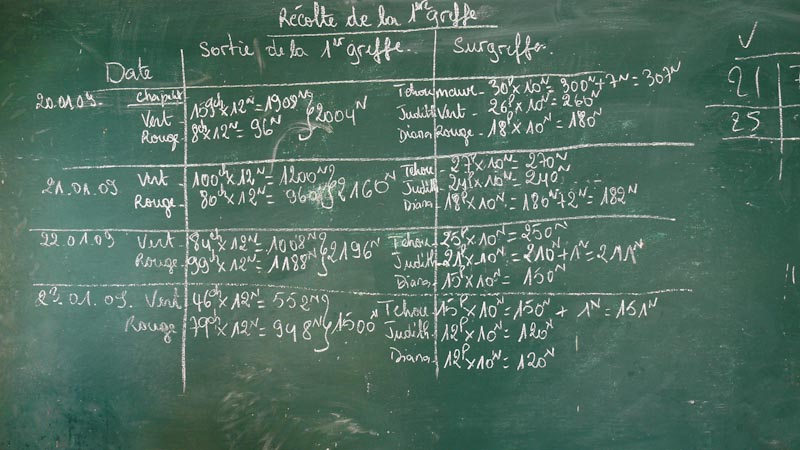 Récolte de la 1ère griffe
Date Sortie de la 1ère griffe. Surgriffe.
20.01.09. Chapelet Tchou mauve - 30P x 10N = 300N + 7N = 307N
Vert - 159ch x 12N = 1908N } 2004N Judith Vert - 26P x 10N = 260N
Rouge - 8ch x 12N = 96N Diana Rouge - 18P x 10N = 180N
21.01.09 Vert - 100ch x 12N = 1200N } 2160N Tchou - 27P x 10N = 270N
Rouge - 80ch x 12N = 960N Judith - 24P x 10N = 240N
Diana - 18P x 10N = 180N + 2N = 182N
22.01.09 Vert - 84ch x 12N = 1008N } 2196N Tchou - 25P x 10N = 250N
Rouge - 99ch x 12N = 1188N Judith - 21P x 10N = 210N + 1N = 211N
Diana - 15P x 10N = 150N
23.01.09. Vert - 46ch x 12N = 552N } 1500N Tchou - 15P x 10N = 150N + 1N = 151N
Rouge - 79ch x 12N = 948N Judith - 12P x 10N = 120N
Diana - 12P x 10N = 120N
V
21
25